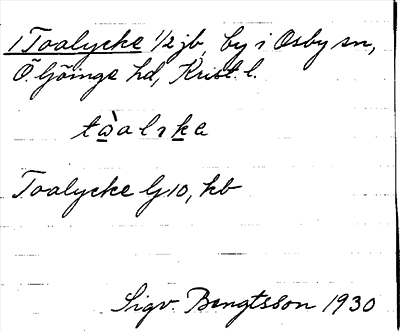 1 Toalycke 1/2 jb, by i Osby sn,
Ö. Göinge hd, Krist. l.
tàalıka
Toalycke G 10, hb
Sigv. Bengtsson 1930